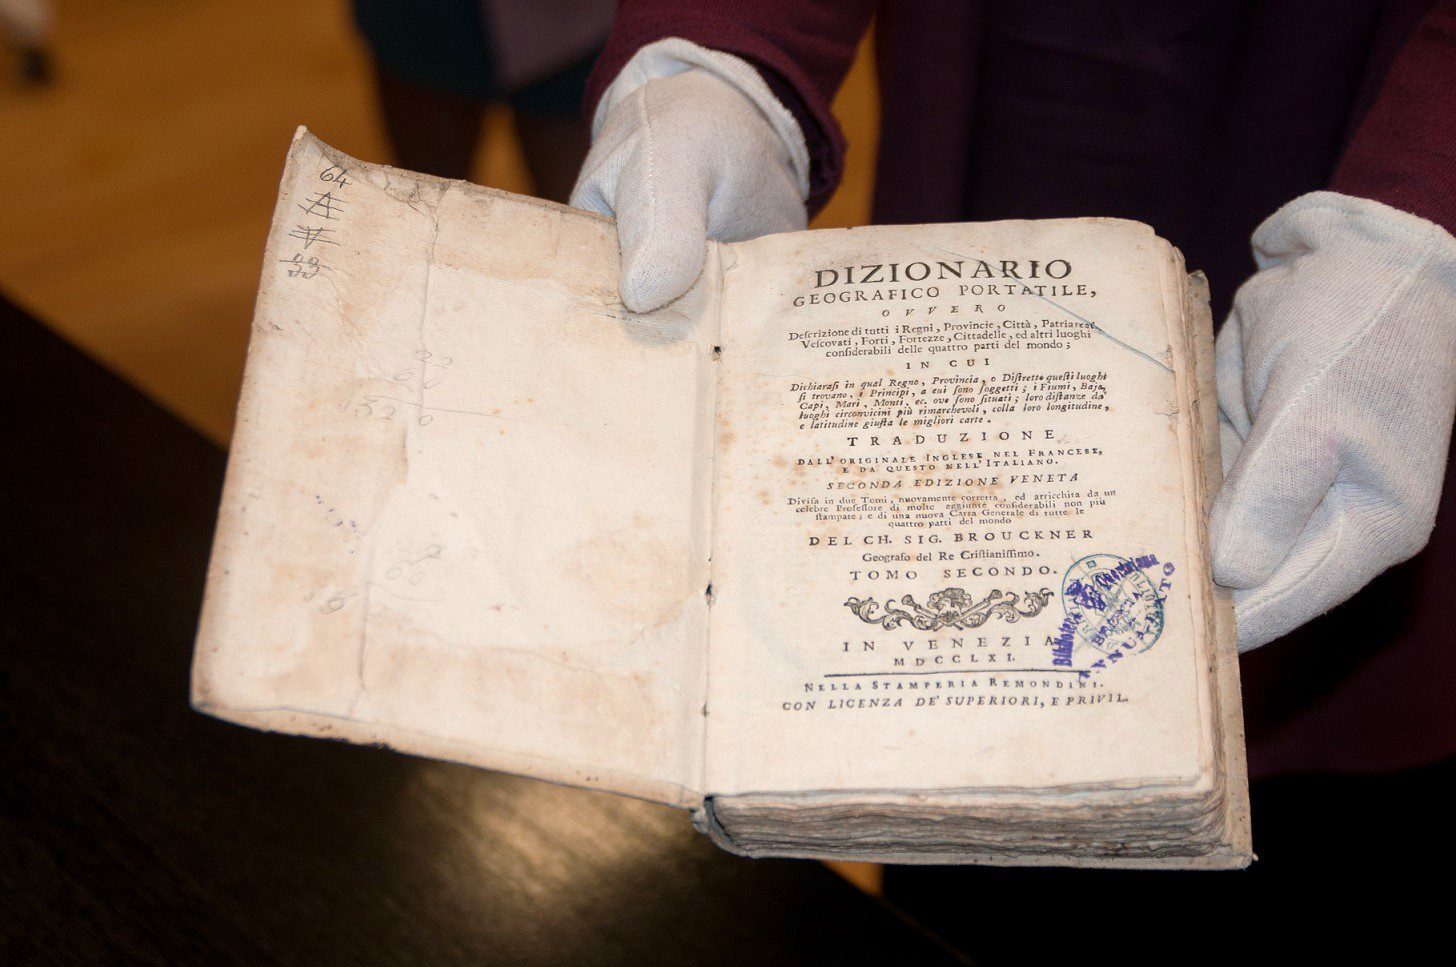 64
A
93
DIZIONARIO
GEOGRAFICO PORTATILE,
OVVERO
Deſcrizione di tutti i Regni, Provincie, Città, Patriarcat,
Veſcovati, Forti, Fortezze, Cittadelle, ed altri luoghi
conſiderabili delle quattro parti del mondo;
IN CUI
Dichiaraſi in qual Regno, Provincia, o Diſtretto queſti luoghi
ſi trovano, i Principi, a cui ſono ſoggetti; i Fiumi, Baje,
Capi, Mari, Monti, ec. ove ſono ſituati; loro diſtanze da'
luoghi circonvicini più rimarchevoli, colla loro longitudine,
e latitudine giuſta le migliori carte.
TRADUZIONE
DALL'ORIGINALE INGLESE NEL FRANCESE,
E DA QUESTO NELL'ITALIANO.
SECONDA EDIZIONE VENETA
Diviſa in due Tomi, nuovamente corretta, ed arricchita da un
celebre Profeſſore di molte aggiunte conſiderabili non più
ſtampate; e di una nuova Carta Generale di tutte le
quattro parti del mondo
DEL CH. SIG. BROUCKNER
Geografo del Re Criſtianiſſimo.
TOMO SECONDO.
IN VENEZIA
MDCCLXI.
NELLA STAMPERIA REMONDINI.
CON LICENZA DE' SUPERIORI, E PRIVIL.
ANNULLATO